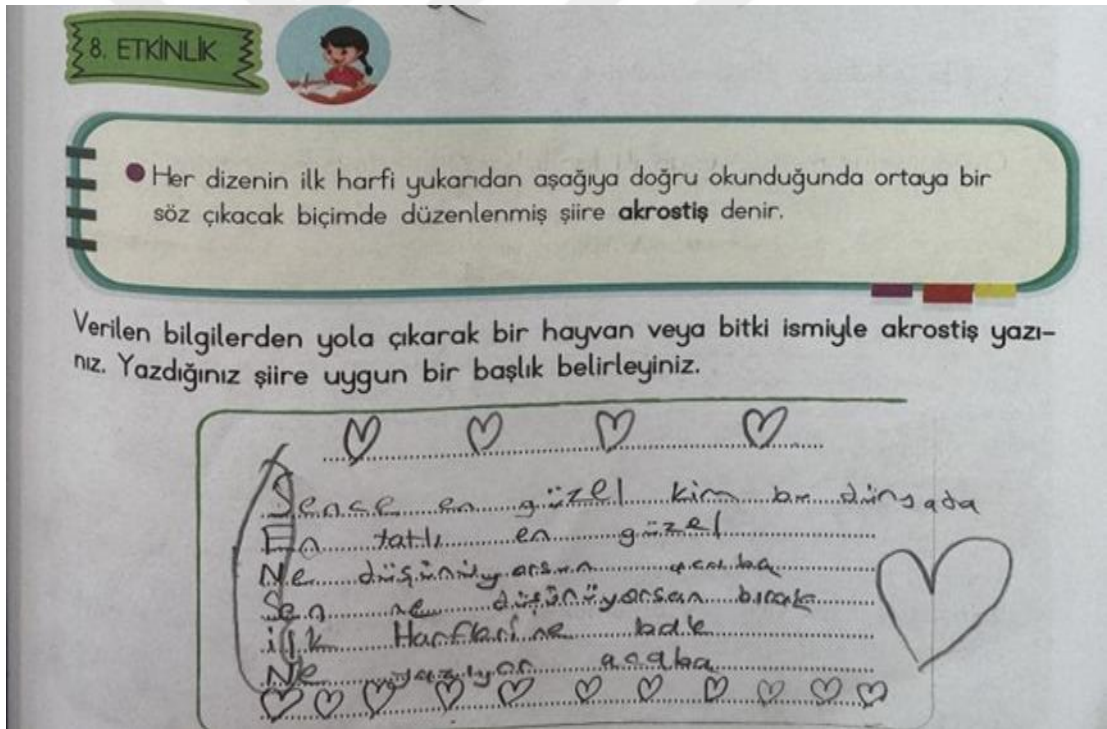 8. ETKİNLİK
Her dizenin ilk harfi yukarıdan aşağıya doğru okunduğunda ortaya bir
söz çıkacak biçimde düzenlenmiş şiire akrostiş denir.
Verilen bilgilerden yola çıkarak bir hayvan veya bitki ismiyle akrostiş yazı-
nız. Yazdığınız şiire uygun bir başlık belirleyiniz.
Sence en güzel kim bu dünyada
En tatlı en güzel
Ne düşünüyorsun acaba
Sen ne düşünüyorsan bırak
ilk Harflerine bak
Ne yazıyor acaba